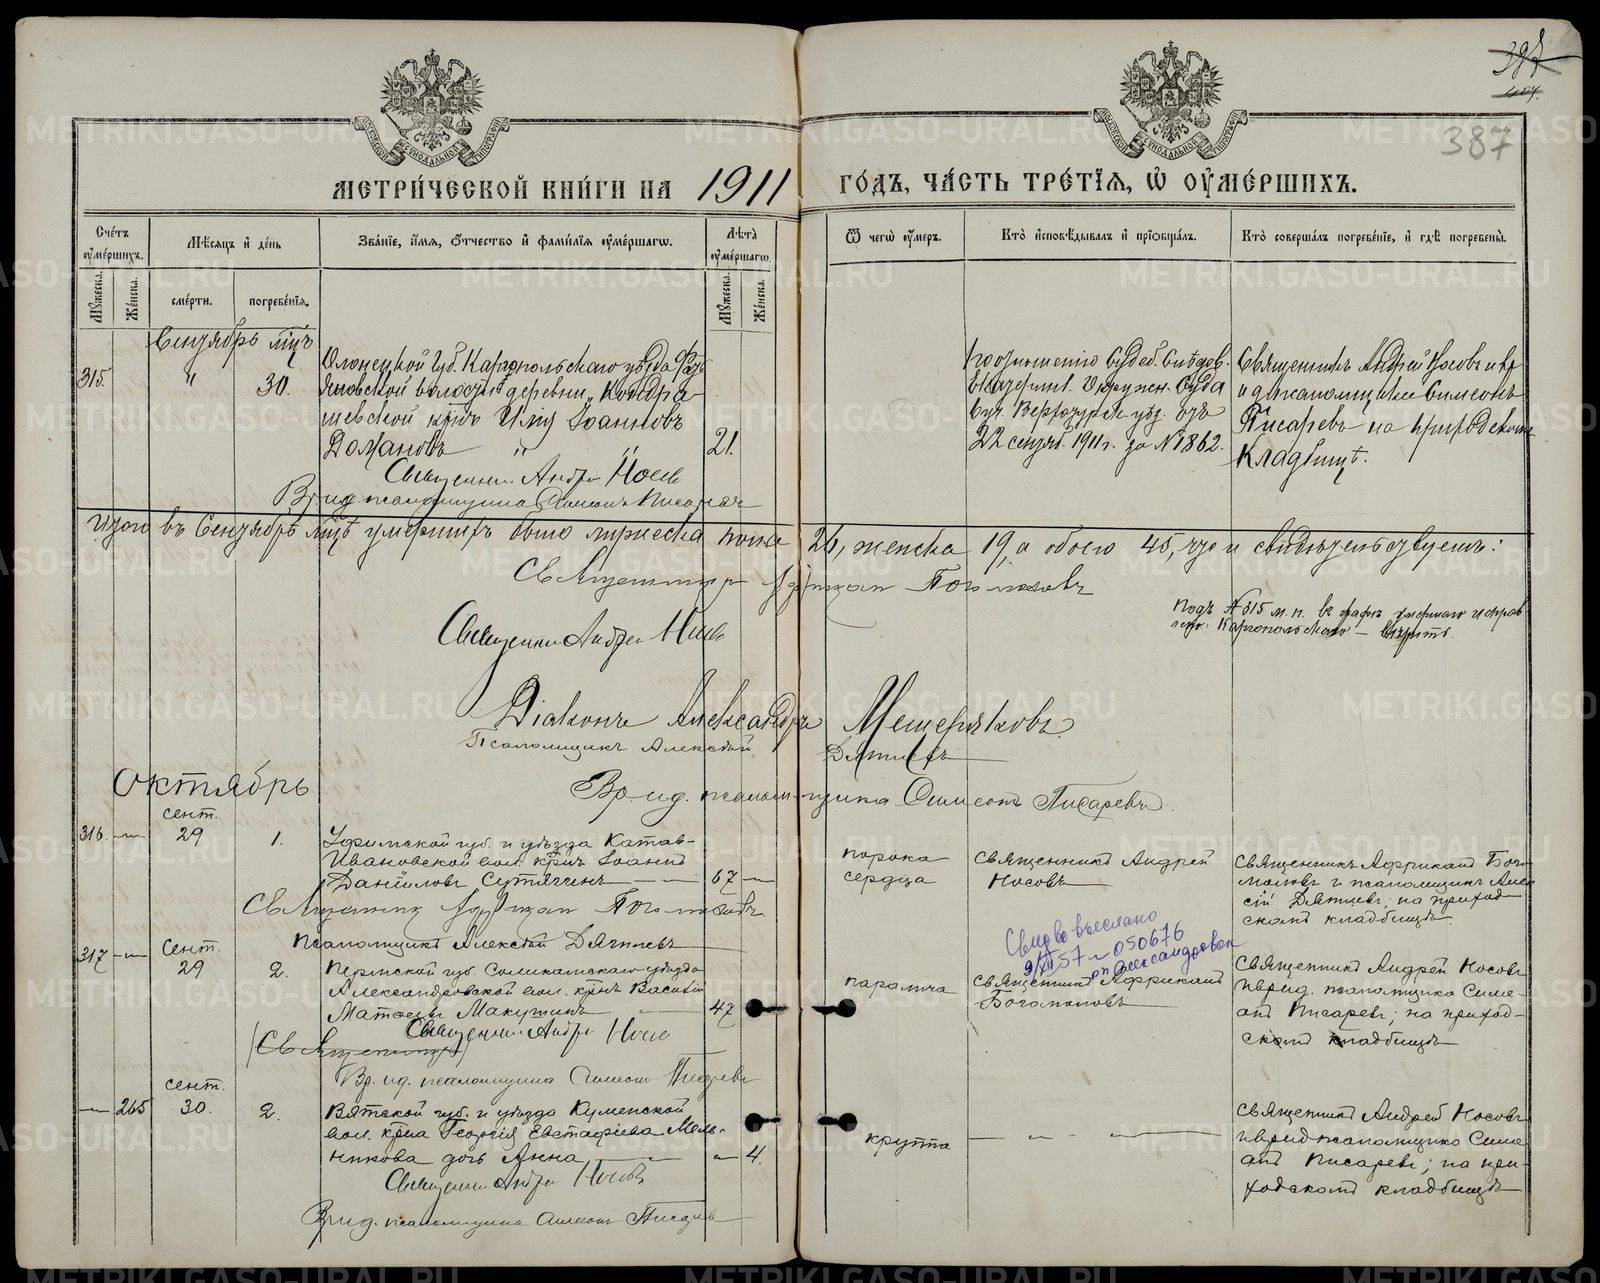 387
МЕТРИ́ЧЕСКОЙ КНИ́ГИ НА 1911 ГО́ДЪ, ЧА́СТЬ ТРЕ́ТІЯ, Ѿ ОУМЕ́РШИХЪ.
Сче́тъ оумершихъ.
Мѣсяцъ и де́нь
Зва́ніе, и́мя, о́тчество и фами́лія оумершагѡ.
Лѣта̀ оумершагѡ.
Ѿ чегѡ̀ оумеръ.
Кто̀ исповѣдывалъ и пріобща́лъ.
Кто̀ соверша́лъ погребе́ніе, и гдѣ̀ погребены̀.
Мꙋжеска.
Же́нска.
сме́рти.
погребе́нія.
Мꙋжеска.
Же́нска.
Сентябрь мцъ
315.
"
30.
Олонецкой Губ. Каргопольскаго уѣзда
волости деревни „Кондра-
шевской крнъ Іоанновъ
21.
По отношенію Судеб. Слѣдов.
Екатеринб. Окружн. Суда
Верхотурск. уѣз. отъ
22 сент. 1911 г. за № 1862.
Священникъ Андрей Носовъ и
псаломщика Симеонъ
Писаревъ на приходскомъ
Кладбищѣ.
Священникъ Андрей Носовъ
Вр. ид. псаломщика Симеонъ Писаревъ
Итого въ Сентябрѣ мцѣ умершихъ было мужеска пола 26, женска 19, а обоего 45, что и свидѣтельствуемъ:
Священникъ Африкан Богомоловъ
Подъ № 315 м. п. въ графѣ умершаго исправ
лено: Каргопольскаго – вѣрить.
Священникъ Андрей Носовъ
Діаконъ Александръ Мещеряковъ
Псаломщикъ Алексѣй Дягилевъ
Вр. ид. псаломщика Симеонъ Писаревъ.
Октябрь
316.
сент.
29
1.
Уфимской губ. и уѣзда Катав-
Ивановской вол. крнъ Іоаннъ
Данииловъ Сутягинъ
67
порока
сердца
Священникъ Андрей
Носовъ
Священникъ Африканъ Бого-
моловъ и псаломщикъ Алек
сѣй Дягилевъ; на приход
скомъ кладбищѣ
Священник Африкан Богомоловъ
Псаломщикъ Алексѣй Дягилевъ
Свид-во выслано
050676
Александровск
317
Сент.
29
2.
Пермской губ. Соликамскаго уѣзда
Александровской вол. крнъ Василій
Матѳеевъ Макушинъ
47
паралича
Священникъ Африканъ
Богомоловъ
Священникъ Андрей Носовъ
и врид. псаломщика Симе-
онъ Писаревъ; на приход-
скомъ кладбищѣ
Священникъ Андрей Носовъ
(Священникъ)
Вр. ид. псаломщика Симеон Писаревъ
265
сент.
30.
2.
Вятской губ. и уѣзда Куменской
вол. крна Георгія Евстафіева Мель-
никова дочь Анна
4.
круппа
Священникъ Андрей Носовъ
и врид псаломщика Симе
онъ Писаревъ; на при-
ходскомъ кладбищѣ
Священникъ Андрей Носовъ
Врид. псаломщика Симеон Писаревъ